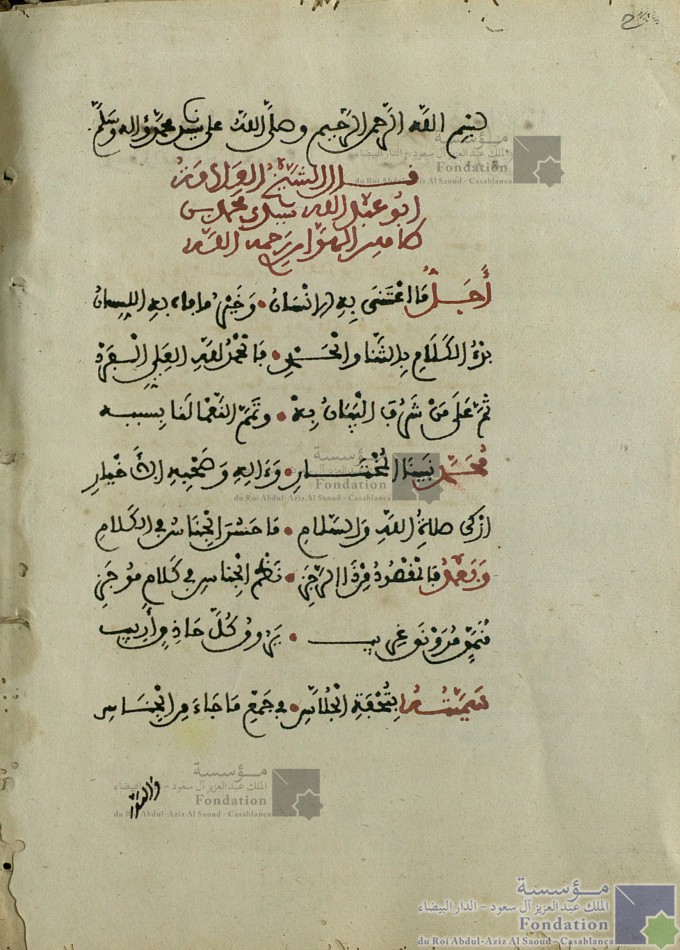 بسم الله الرحمن الرحيم وصلى الله على سيدنا محمد وءاله وسلم
قال الشيخ العلامة
ابو عبد الله سيدي محمد بن
عامر الهواري رحمه الله
أجل ما اعتنى به الانسان • وخير ما فاه به اللسان
بدء الكلام بالثنا والحمد • فالحمد لله العلي الفرد
ثم على من شرف البيان به • وتمم النعما لنا بسببه
محمد نبينا المختار • وءاله وصحبه الأخيار
ازكى صلاة الله والسلام • ما حسن الجناس في الكلام
وبعد فالمقصود من ذا الرجز • نظم الجناس في كلام موجز
منمق مرونق غريب • يروق كل حاذق وأريب
سميته بتحفة الجلاس • في جمع ما جاء من الجناس
والله
مؤسسة
الملك عبد العزيز آل سعود - الدار البيضاء
Fondation
du Roi Abdul-Aziz Al Saoud - Casablanca